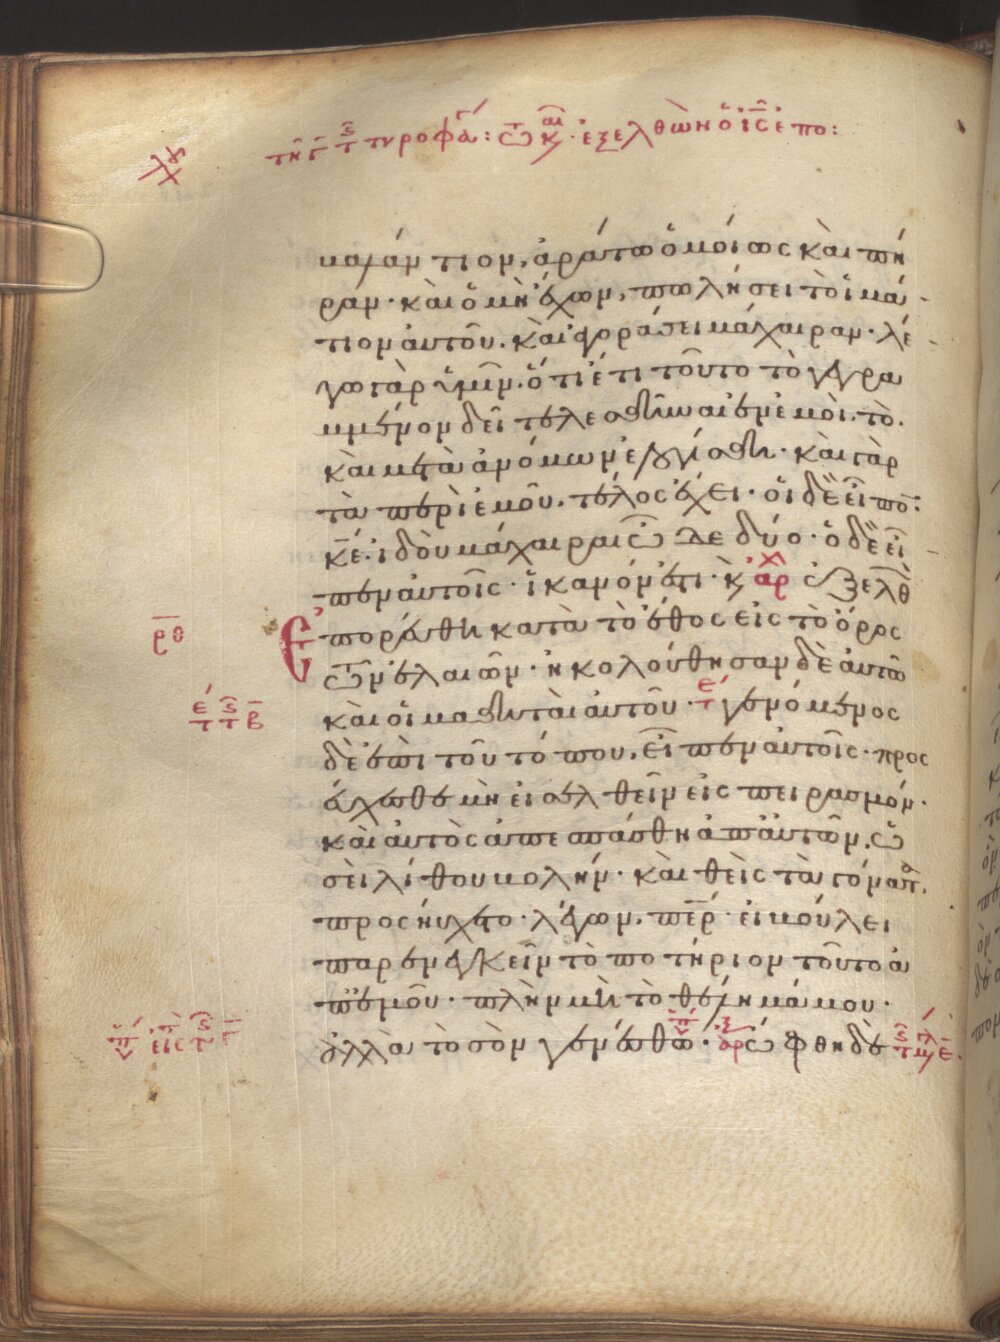 τῇ γ τῆς τυροφά: τῶ και· ἐξελθὼν ὁ ἰς ἐπο:
λχ
βαλάντιον, ἀράτω ὁμοίως καὶ πή
ραν· καὶ ὁ μὴ ἔχων, πωλήσει τὸ ἱμά
τιον αὐτοῦ. καὶ ἀγοράσει μάχαιραν· λέ
γω γὰρ ὑμῖν. ὅτι ἔτι τοῦτο τὸ γεγρα
μμένον δεῖ τελεσθῆναι ἐν ἐμοὶ. τὸ.
καὶ μετὰ ἀνόμων ἐλογίσθη· καὶ γὰρ
τὰ περὶ ἐμοῦ. τέλος ἔχει· οἱ δὲ εἶπον:
κε. ἰδοὺ μάχαιραι ὧδε δύο· ὁ δὲ εἶ
πεν αὐτοῖς· ἱκανόν ἐστι· κ ἀρχ ἐξελθὼ
ρθ Ἐπορεύθη κατὰ τὸ ἔθος εἰς τὸ ὄρος
τῶν ἐλαιῶν· ἠκολούθησαν δὲ αὐτῶ
καὶ οἱ μαθηταὶ αὐτοῦ· γενόμενος
δὲ ἐπὶ τοῦ τόπου, εἶπεν αὐτοῖς· προς
εύχεσθε μὴ εἰσελθεῖν εἰς πειρασμόν·
καὶ αὐτὸς ἀπεσπάσθη ἀπ' αὐτῶν, ὡ
σεὶ λίθου βολήν· καὶ θεὶς τὰ γόνατ,
προσηύχετο· λέγων, περ· εἰ βούλει
παρενεγκεῖν τὸ ποτήριον τοῦτο ἀ
π' ἐμοῦ· πλὴν μὴ τὸ θέλημά μου·
ἀλλὰ τὸ σὸν γενέσθω· ἀρξ ὤφθη δὲ